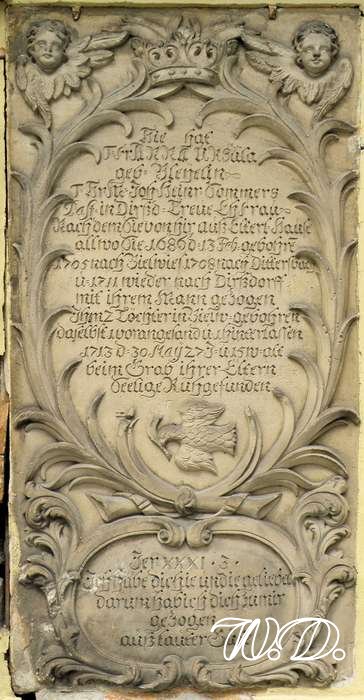 Hie hat
Fr ANNA Ursula
geb
Hn Joh Heinr Tommers
Past in Dirsd Treue Ehfrau
Nach dem Sie von hir aus Eltert Hause
allwo Sie 1686 d 13 Feb gebohrn
1705 nach Bielwies 1708 nach Dittersbac
u 1711 wieder nach Dirsdorff
mit ihrem Mann gezogen
Ihm 2 Toechter in Bielw gebohren
daselbst 1 vorangesand u 1 hinterlassen
1713 d 30 May 27 J u 15 w alt
beim Grab ihrer Eltern
Seelige Ruh gefunden
Jer XXXI 3
Ich habe dich ie und ie geliebet
darum hab ich dich zu mir
gezogen
aus lauter
W. D.